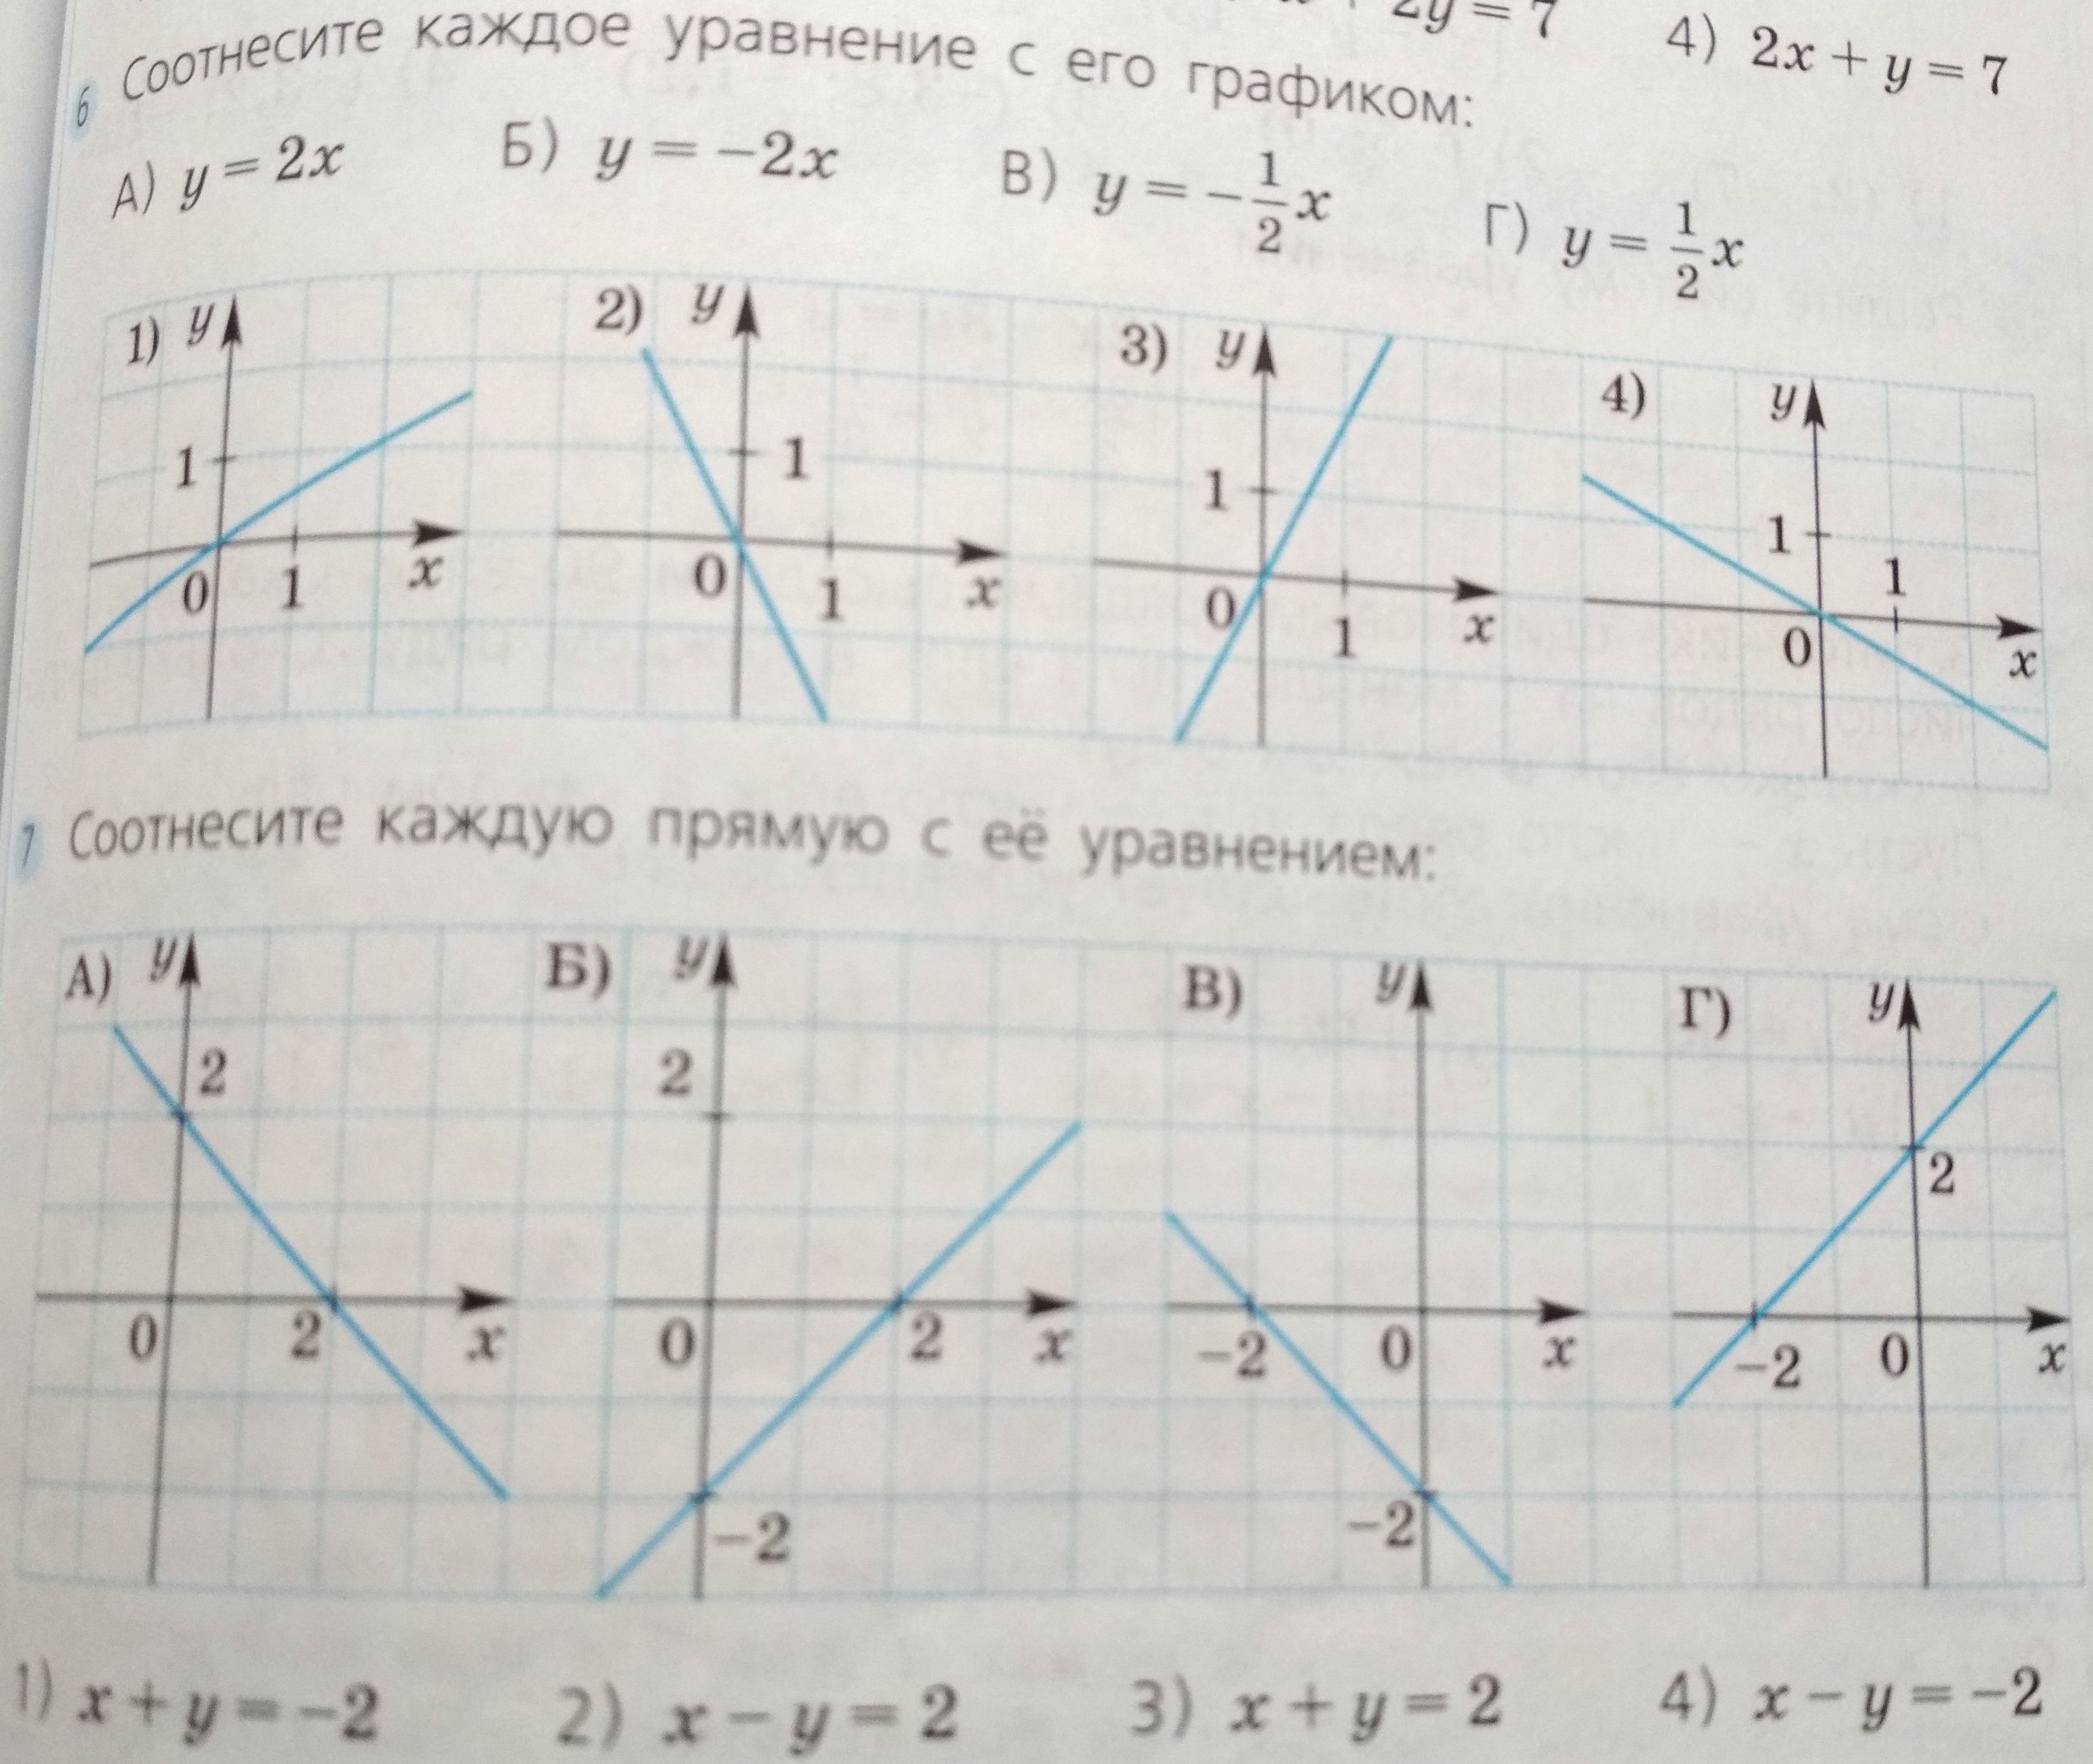 2y = 7 4) 2x + y = 7
6 Соотнесите каждое уравнение с его графиком:
А) y = 2x Б) y = −2x В) y = −1/2 x Г) y = 1/2 x
1) y 1 0 1 x
2) y 1 0 1 x
3) y 1 0 1 x
4) y 1 1 0 x
7 Соотнесите каждую прямую с её уравнением:
А) y 2 0 2 x
Б) y 2 0 2 x −2
В) y −2 0 x −2
Г) y 2 −2 0 x
1) x + y = −2 2) x − y = 2 3) x + y = 2 4) x − y = −2